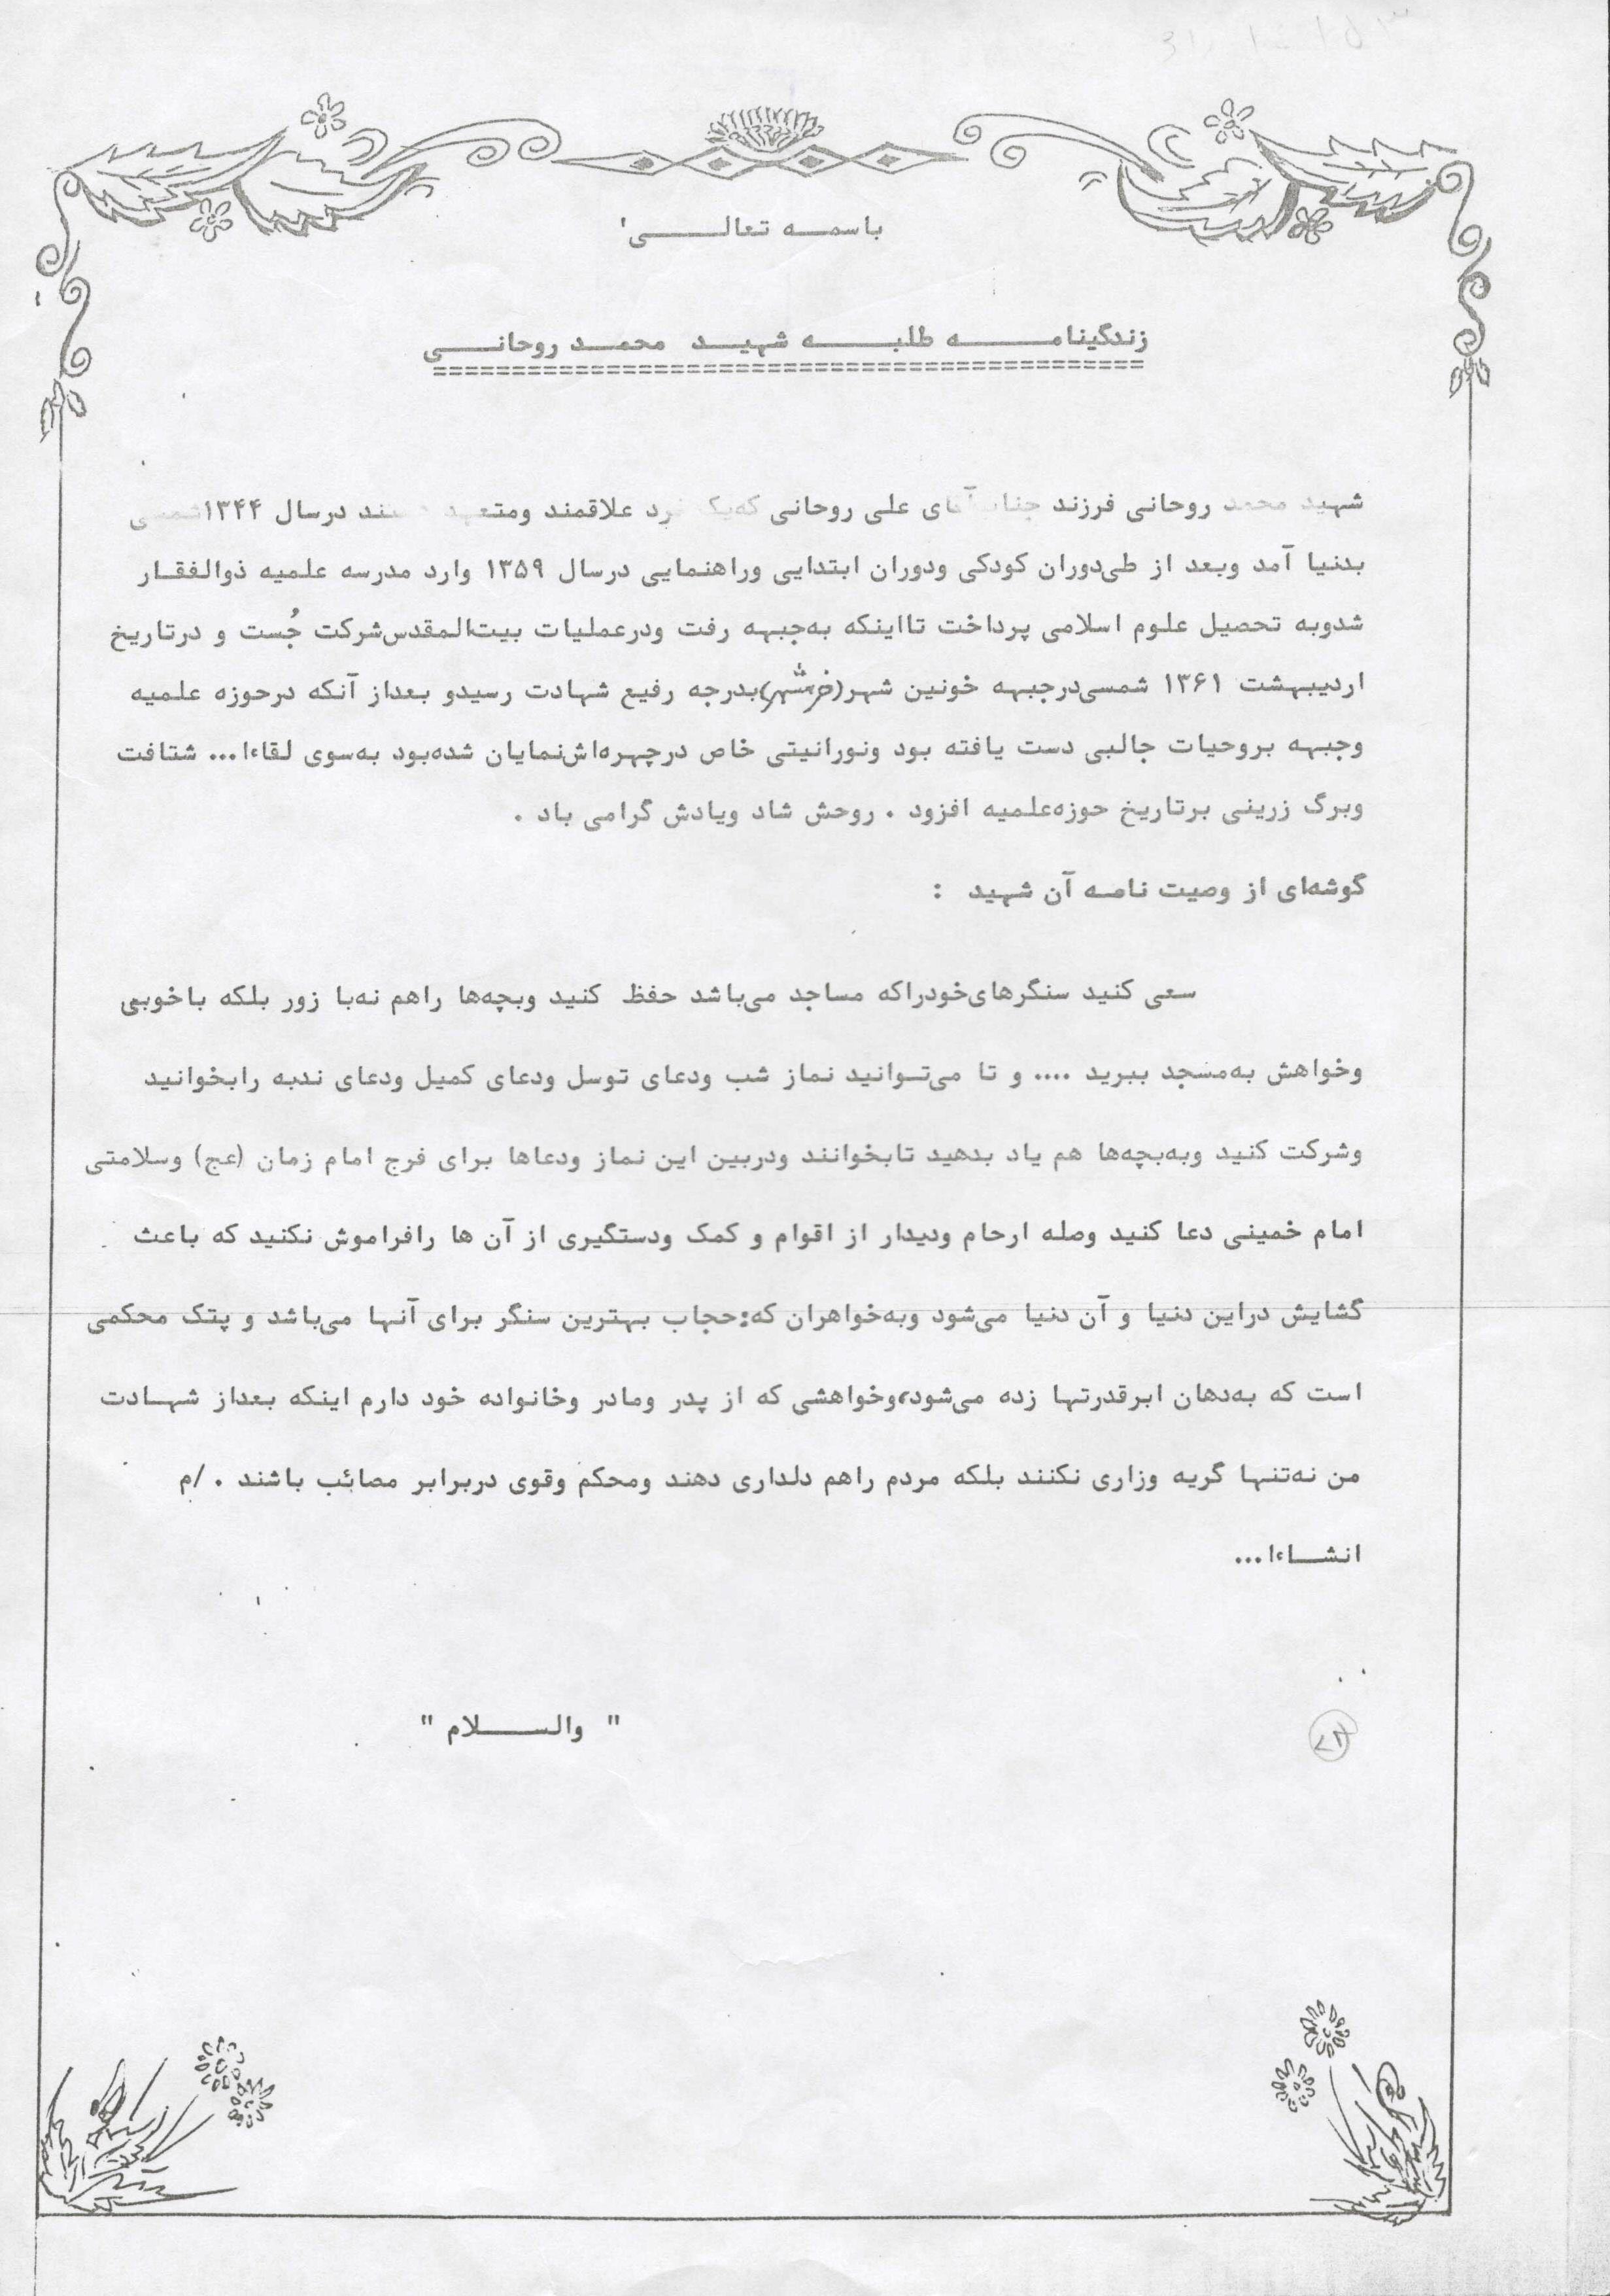 باسمه تعالی
زندگینامه طلبه شهید محمد روحانی
شهید محمد روحانی فرزند جناب آقای علی روحانی که‌یک فرد علاقمند ومتعهد درسال ۱۳۴۴شمسی
بدنیا آمد وبعد از طی‌دوران کودکی ودوران ابتدایی وراهنمایی درسال ۱۳۵۹ وارد مدرسه علمیه ذوالفقار
شدوبه تحصیل علوم اسلامی پرداخت تااینکه به‌جبهه رفت ودرعملیات بیت‌المقدس‌شرکت جُست و درتاریخ
اردیبهشت ۱۳۶۱ شمسی‌درجبهه خونین شهر(خرمشهر)بدرجه رفیع شهادت رسیدو بعداز آنکه درحوزه علمیه
وجبهه بروحیات جالبی دست یافته بود ونورانیتی خاص درچهره‌اش‌نمایان شده‌بود به‌سوی لقاءا... شتافت
وبرگ زرینی برتاریخ حوزه‌علمیه افزود . روحش شاد ویادش گرامی باد .
گوشه‌ای از وصیت نامه آن شهید :
سعی کنید سنگرهای‌خودراکه مساجد می‌باشد حفظ کنید وبچه‌ها راهم نه‌با زور بلکه باخوبی
وخواهش به‌مسجد ببرید .... و تا می‌توانید نماز شب ودعای توسل ودعای کمیل ودعای ندبه رابخوانید
وشرکت کنید وبه‌بچه‌ها هم یاد بدهید تابخوانند ودربین این نماز ودعاها برای فرج امام زمان (عج) وسلامتی
امام خمینی دعا کنید وصله ارحام ودیدار از اقوام و کمک ودستگیری از آن ها رافراموش نکنید که باعث
گشایش دراین دنیا و آن دنیا می‌شود وبه‌خواهران که:حجاب بهترین سنگر برای آنها می‌باشد و پتک محکمی
است که به‌دهان ابرقدرتها زده می‌شود،وخواهشی که از پدر ومادر وخانواده خود دارم اینکه بعداز شهادت
من نه‌تنها گریه وزاری نکنند بلکه مردم راهم دلداری دهند ومحکم وقوی دربرابر مصائب باشند . /م
انشاءا...
" والسلام "